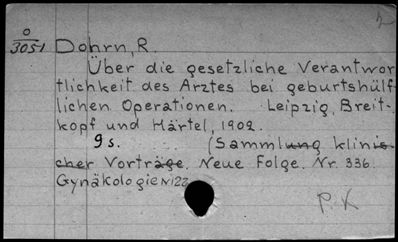 O
3051
Dohrn, R.
Über die gesetzliche Verantwor
tlichkeit des Arztes bei geburtshülf
lichen Operationen. Leipzig, Breit-
kopf und Härtel, 1902.
9 s. (Sammlung klinis
cher Vorträge. Neue Folge. Nr. 336.
Gynäkologie N122
P. K